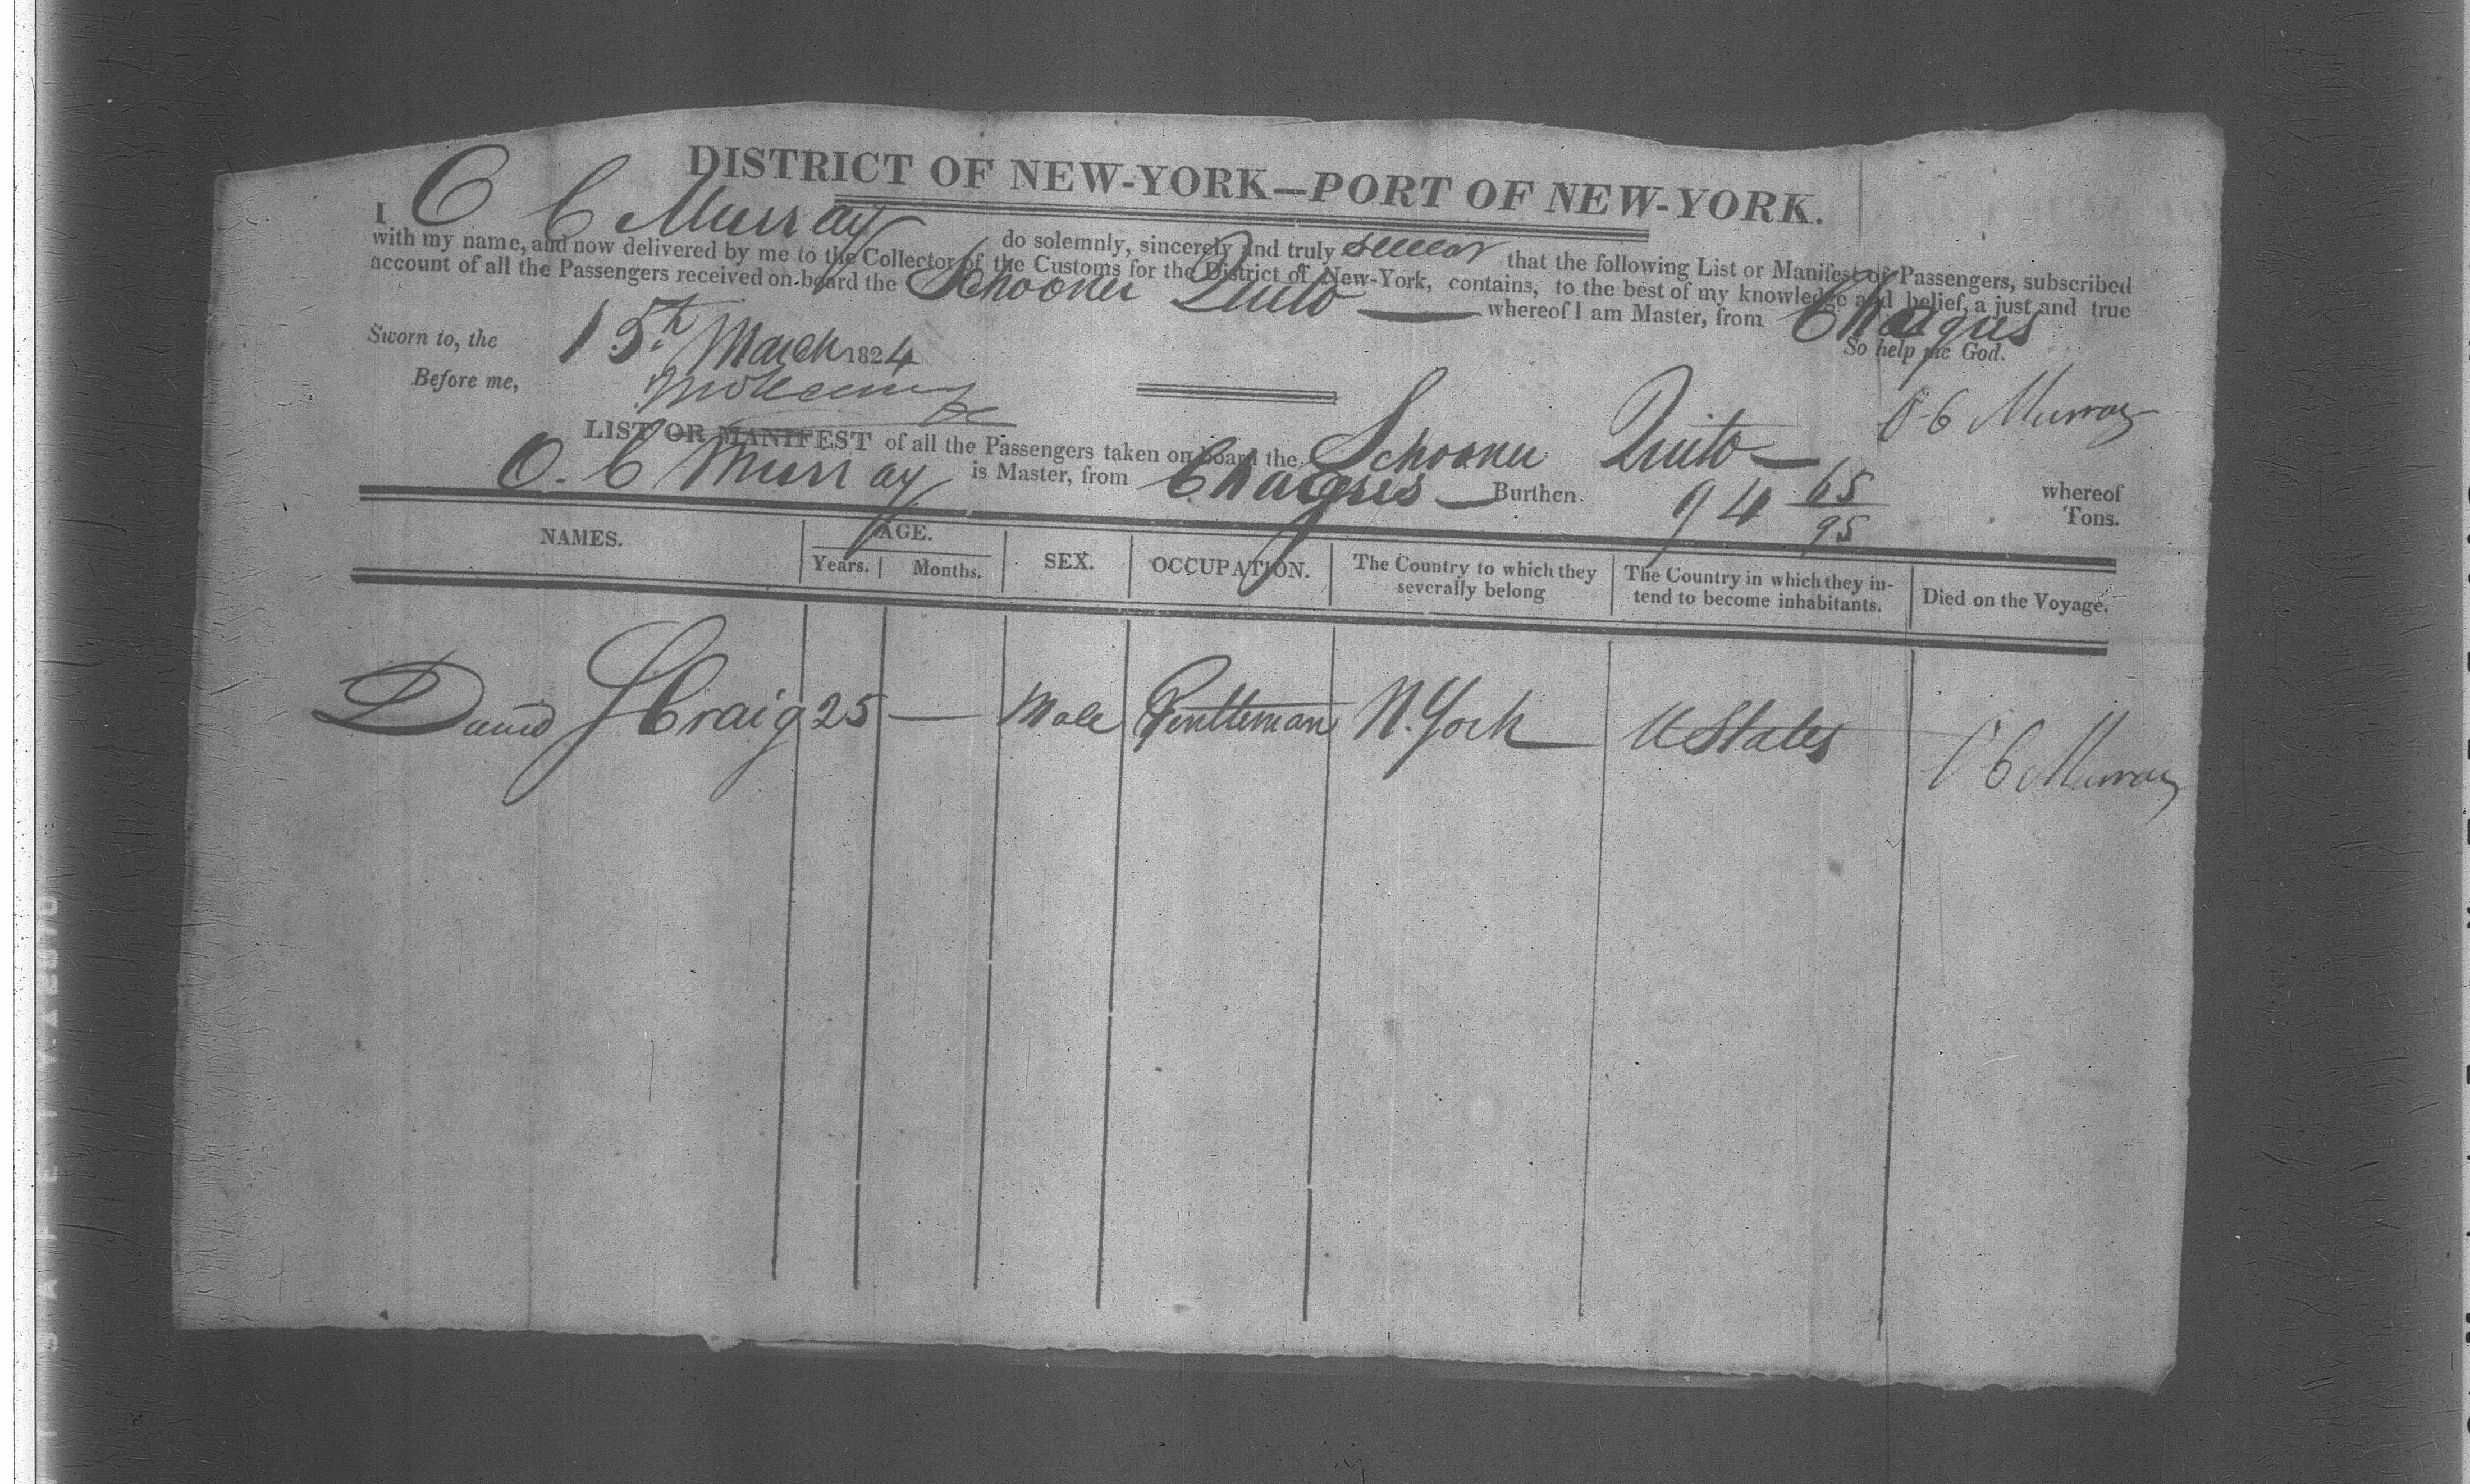 DISTRICT OF NEW-YORK—PORT OF NEW-YORK.
I O C Murray do solemnly, sincerely and truly swear that the following List or Manifest of Passengers, subscribed
with my name, and now delivered by me to the Collector of the Customs for the District of New-York, contains, to the best of my knowledge and belief, a just and true
account of all the Passengers received on board the Schooner Quito — whereof I am Master, from Chagres
Sworn to, the 15th March 1824 So help me God.
Before me,
O C Murray
LIST OR MANIFEST of all the Passengers taken on board the Schooner Quito — whereof
O. C Murray is Master, from Chagres — Burthen. 94 65/95 Tons.
NAMES. AGE. SEX. OCCUPATION. The Country to which they severally belong The Country in which they intend to become inhabitants. Died on the Voyage.
Years. Months.
David J Craig 25 — Male Gentleman N. York U States
O C Murray